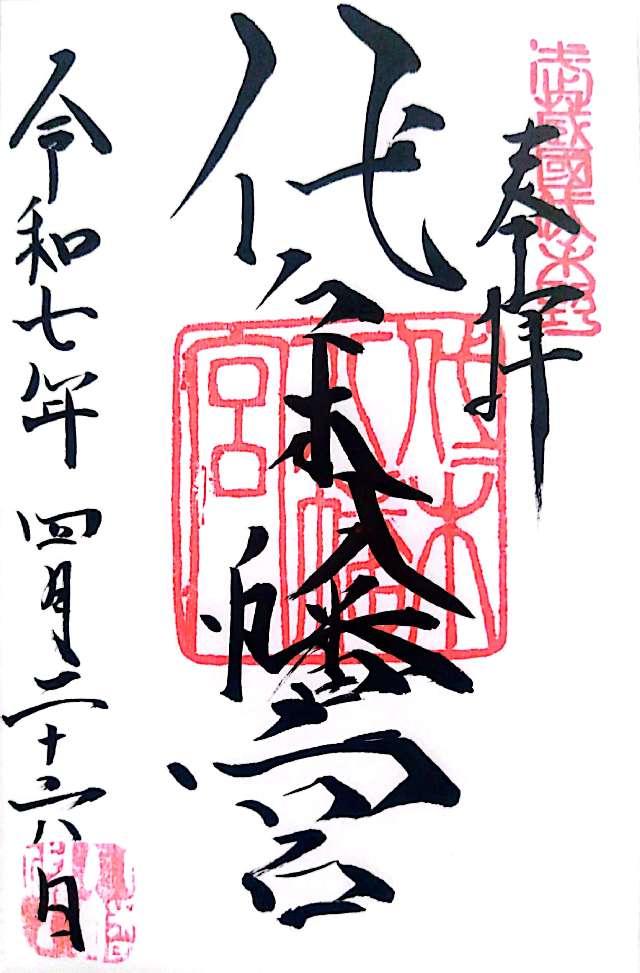 武蔵國代々木野
奉拝
代々木八幡宮
代々木八幡宮
令和七年四月二十六日